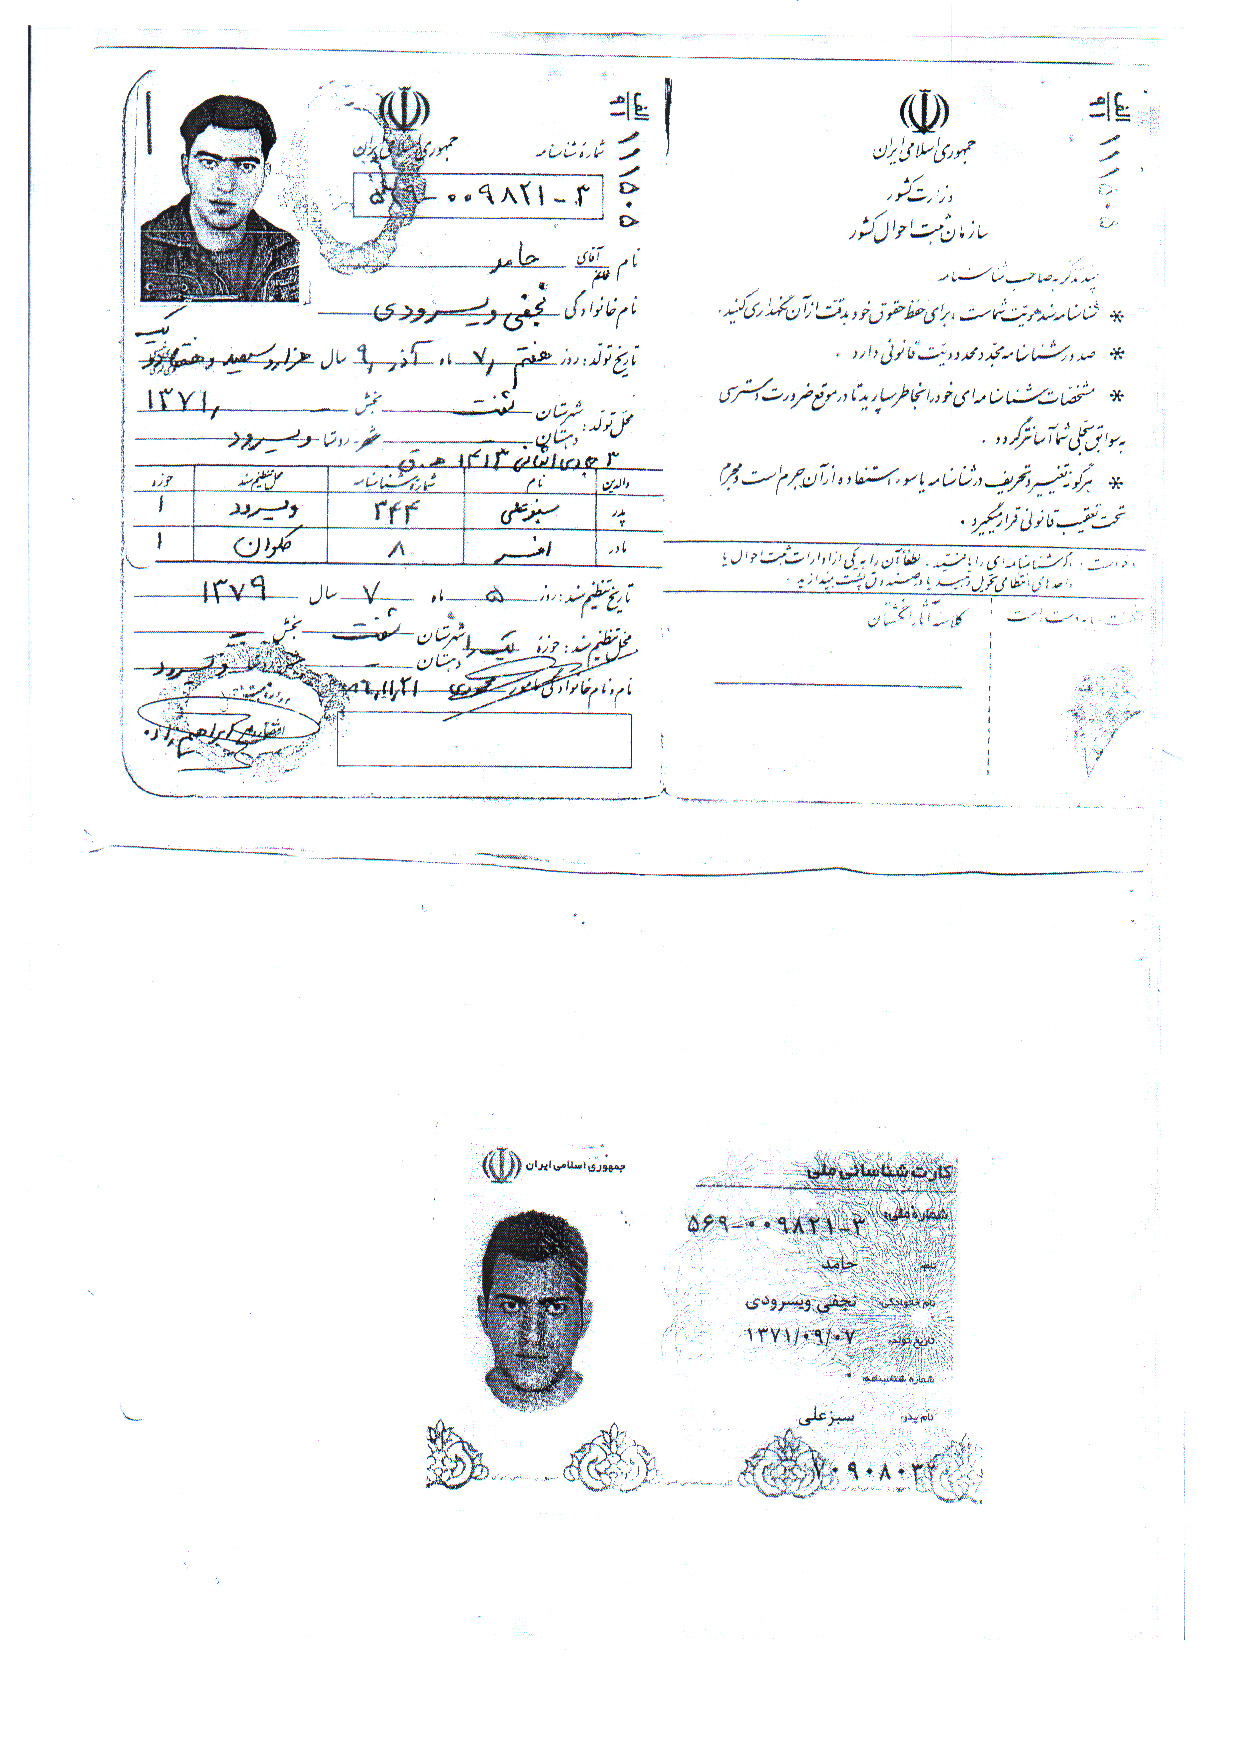 جمهوری اسلامی ایران
وزارت کشور
سازمان ثبت احوال کشور
چند تذکر به صاحب شناسنامه
* شناسنامه سند هویت شماست ، برای حفظ حقوق خود بدقت از آن نگهداری کنید .
* صدور شناسنامه مجدد محدودیت قانونی دارد .
* مشخصات شناسنامه ای خود را بخاطر بسپارید تا در موقع ضرورت دسترسی
به سوابق سجلی شما آسانتر گردد .
* هرگونه تغییر و تحریف در شناسنامه یا سوء استفاده از آن جرم است و مجرم
تحت تعقیب قانونی قرار میگیرد .
شناسنامه ای را یافتید ، لطفا آن را به یکی از ادارات ثبت احوال یا
واحدهای انتظامی تحویل دهید یا در صندوق پست بیندازید .
کلاسه آثار انگشتان
جمهوری اسلامی ایران
شماره شناسنامه
۰۰۹۸۲۱-۳
الف
۱۱
۱۱۵۰۵
نام آقای حامد
نام خانوادگی نجفی ویسرودی
تاریخ تولد : روز هفتم ۷ ماه آذر ۹ سال یک هزار و سیصد و هفتاد و
۱۳۷۱
محل تولد : شهرستان تفت بخش
دهستان شهر - روستا ویسرود
۳ جمادی الثانی ۱۴۱۳ ه.ق
والدین نام شماره شناسنامه محل تنظیم سند حوزه
پدر سبزعلی ۳۴۴ ویسرود ۱
مادر افسر ۸ ۱
تاریخ تنظیم سند : روز ۵ ماه ۷ سال ۱۳۷۹
محل تنظیم سند : حوزه یک شهرستان تفت بخش
دهستان ویسرود
نام و نام خانوادگی مامور محمودی
جمهوری اسلامی ایران
کارت شناسائی ملی
شماره ملی: ۵۶۹-۰۰۹۸۲۱-۳
نام: حامد
نام خانوادگی: نجفی ویسرودی
تاریخ تولد: ۱۳۷۱/۰۹/۰۷
شماره شناسنامه: ۰
نام پدر: سبزعلی